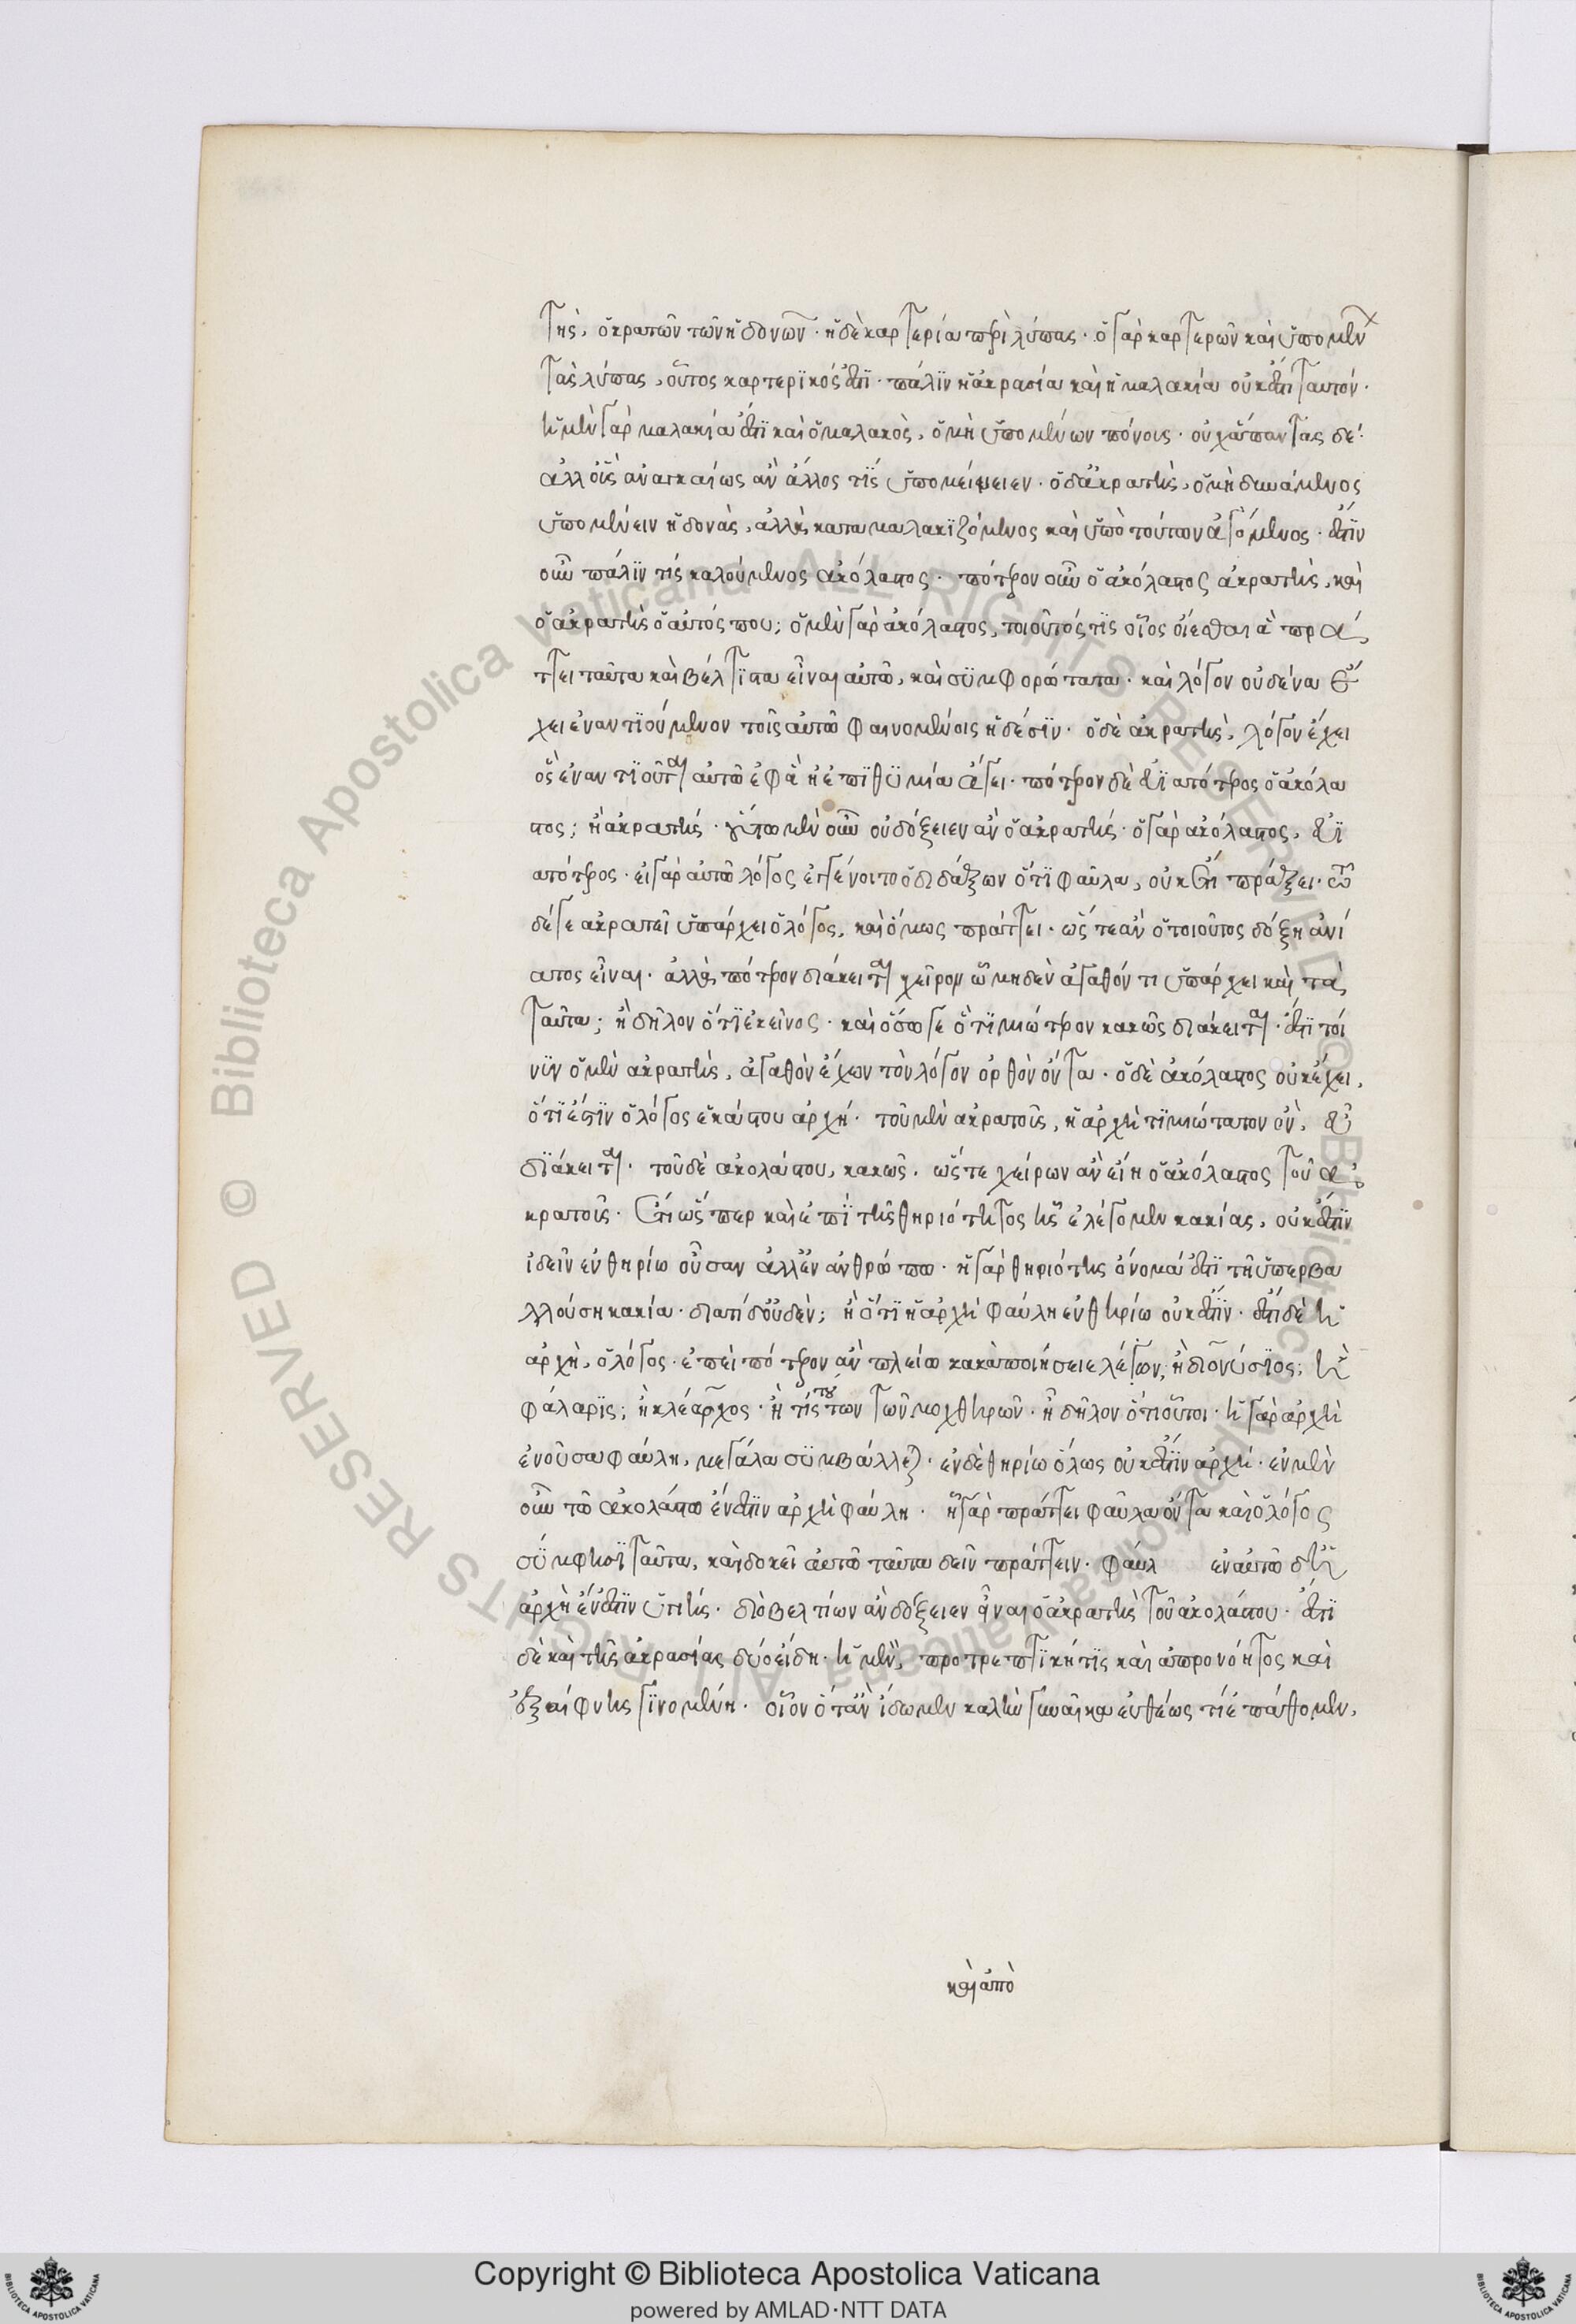 της, ὁ κρατῶν τῶν ἡδονῶν· ἡ δὲ καρτερία περὶ λύπας· ὁ γὰρ καρτερῶν καὶ ὑπομένων
τὰς λύπας, οὗτος καρτερϊκός ἐστϊ· πάλϊν ἡ ἀκρασία καὶ ἡ μαλακία οὐκ ἐστὶ ταυτόν·
ἡ μὲν γὰρ μαλακία ἐστϊ καὶ ὁ μαλακὸς, ὁ μὴ ὑπομένων πόνους· οὐχ ἅπαντας δέ·
ἀλλ οὓς ἀναγκαίως ἂν ἄλλος τϊς ὑπομείνειεν· ὁ δ ἀκρατὴς, ὁ μὴ δυνάμενος
ὑπομένειν ἡδονὰς, ἀλλὰ καταμαλακϊζόμενος καὶ ὑπὸ τούτων ἀγόμενος· ἔστϊν
οὖν πάλϊν τίς καλούμενος ἀκόλαστος· πότερον οὖν ὁ ἀκόλαστος ἀκρατὴς, καὶ
ὁ ἀκρατὴς ὁ αὐτός που; ὁ μὲν γὰρ ἀκόλαστος, τοιοῦτός τϊς οἷος οἴεσθαι ἃ πρά
ττει ταῦτα καὶ βέλτϊστα εἶναι αὐτῶ, καὶ σϋμφορώτατα· καὶ λόγον οὐδένα ἔ
χει ἐναντϊούμενον τοῖς αὐτῶ φαινομένοις ἡδέσϊν· ὁ δὲ ἀκρατὴς, λόγον ἔχει
ὃς ἐναντϊοῦται αὐτῶ ἐφ ἃ ἡ ἐπϊθϋμία ἄγει· πότερον δὲ εὐϊατότερος ὁ ἀκόλα
στος; ἢ ἀκρατής· οὕτω μὲν οὖν οὐ δόξειεν ἂν ὁ ἀκρατής· ὁ γὰρ ἀκόλαστος, εὐϊ
ατότερος· εἰ γὰρ αὐτῶ λόγος ἐγγένοιτο ὁ διδάξων ὅτϊ φαῦλα, οὐκ ἔτι πράξει· τῶ
δέ γε ἀκρατεῖ ὑπάρχει ὁ λόγος, καὶ ὅμως πράττει· ὥς τε ἂν ὁ τοιοῦτος δόξη ἀνί
ατος εἶναι· ἀλλὰ πότερον διάκειται χεῖρον ᾧ μηδὲν ἀγαθόν τι ὑπάρχει καὶ τὰ
ταῦτα; ἢ δῆλον ὅτϊ ἐκεῖνος· καὶ ὅσω γε ὅτϊ μιώτερον κακῶς διάκειται· ἔστϊ τοί
νϋν ὁ μὲν ἀκρατὴς, ἀγαθὸν ἔχων τὸν λόγον ὀρθὸν ὄντα· ὁ δὲ ἀκόλαστος οὐκ ἔχει,
ὅτϊ ἐστϊν ὁ λόγος ἑκάστου ἀρχή· τοῦ μὲν ἀκρατοῦς, ἡ ἀρχὴ τϊμιώτατον ὂν, εὖ
δϊάκειται· τοῦ δὲ ἀκολάστου, κακῶς· ὥς τε χείρων ἂν εἴη ὁ ἀκόλαστος τοῦ ἀ
κρατοῦς· ἔτι ὥς περ καὶ ἐπϊ τῆς θηριότητος ἧς ἐλέγομεν κακίας, οὐκ ἔστϊν
ἰδεῖν ἐν θηρίω οὖσαν ἀλλ ἐν ἀνθρώπω· ἡ γὰρ θηριότης ὄνομά ἐστϊ τῆ ὑπερβα
λλούση κακία· διατί δ οὐδὲν; ἢ ὅτϊ ἡ ἀρχὴ φαύλη ἐν θηρίω οὐκ ἔστϊν· ἔστϊ δὲ ἡ
ἀρχὴ, ὁ λόγος· ἐπεὶ πότερον ἂν πλείω κακὰ ποιήσειε λέγων; ἢ διονύσϊος; ἢ
φάλαρϊς; ἢ κλέαρχος· ἢ τίς τούτων τῶν μοχθηρῶν· ἢ δῆλον ὅτι οὗτοι· ἡ γὰρ ἀρχὴ
ἐνοῦσα φαύλη, μεγάλα σϋμβάλλεται· ἐν δὲ θηρίω ὅλως οὐκ ἔστϊν ἀρχή· ἐν μὲν
οὖν τῶ ἀκολάστω ἔνεστϊν ἀρχὴ φαύλη· ᾗ γὰρ πράττει φαῦλα ὄντα καὶ ὁ λόγος
σϋμφησϊ ταῦτα, καὶ δοκεῖ αὐτῶ ταῦτα δεῖν πράττειν· φαύλ ἐν αὐτῶ δὲ ἡ
ἀρχὴ ἔνεστϊν ὑγιής· διὸ βελτίων ἂν δόξειεν εἶναι ὁ ἀκρατὴς τοῦ ἀκολάστου· ἔστϊ
δὲ καὶ τῆς ἀκρασίας δύο εἴδη· ἡ μὲν, προτρεπτϊκή τϊς καὶ ἀπρονόητος καὶ
ἐξαίφνης γϊνομένη· οἷον ὅταν ἴδωμεν καλὴν γυναῖκα εὐθέως τί ἐπάθομεν,
καὶ ἀπὸ
Copyright © Biblioteca Apostolica Vaticana
powered by AMLAD·NTT DATA